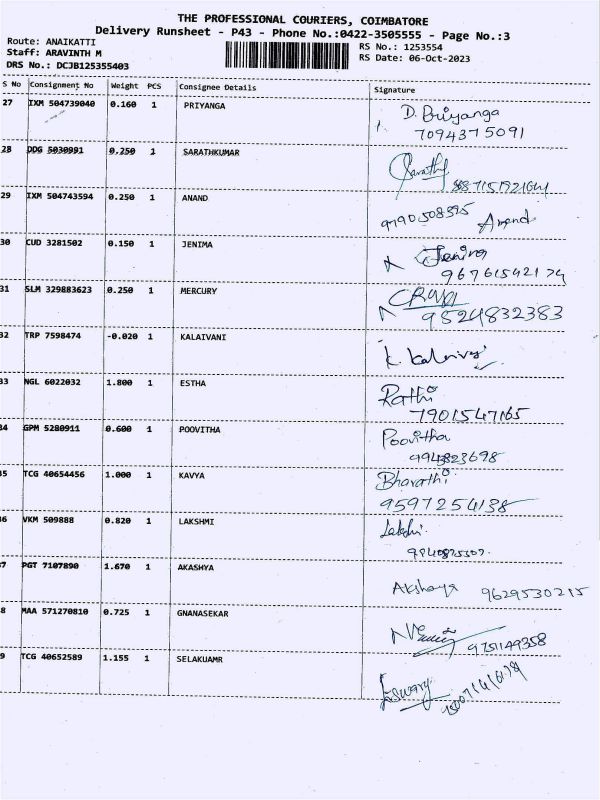 THE PROFESSIONAL COURIERS, COIMBATORE
Delivery Runsheet - P43 - Phone No.:0422-3505555 - Page No.:3
Route: ANAIKATTI
Staff: ARAVINTH M
DRS No.: DCJB125355403
RS No.: 1253554
RS Date: 06-Oct-2023
S No Consignment No Weight PCS Consignee Details Signature
27 IXM 504739040 0.160 1 PRIYANGA D. Priyanga
7094375091
28 DDG 5030991 0.250 1 SARATHKUMAR Sarathy
29 IXM 504743594 0.250 1 ANAND Anand
30 CUD 3281502 0.150 1 JENIMA
9676154217
31 SLM 329883623 0.250 1 MERCURY
9524832383
32 TRP 7598474 -0.020 1 KALAIVANI
33 NGL 6022032 1.800 1 ESTHA Rathi
7901547165
34 GPM 5280911 0.600 1 POOVITHA Poovitha
9943823698
35 TCG 40654456 1.000 1 KAVYA Bharathi
9597254138
36 VKM 509888 0.820 1 LAKSHMI
37 PGT 7107890 1.670 1 AKASHYA Akshaya 9629530215
8 MAA 571270810 0.725 1 GNANASEKAR
9751149358
9 TCG 40652589 1.155 1 SELAKUAMR Eswary